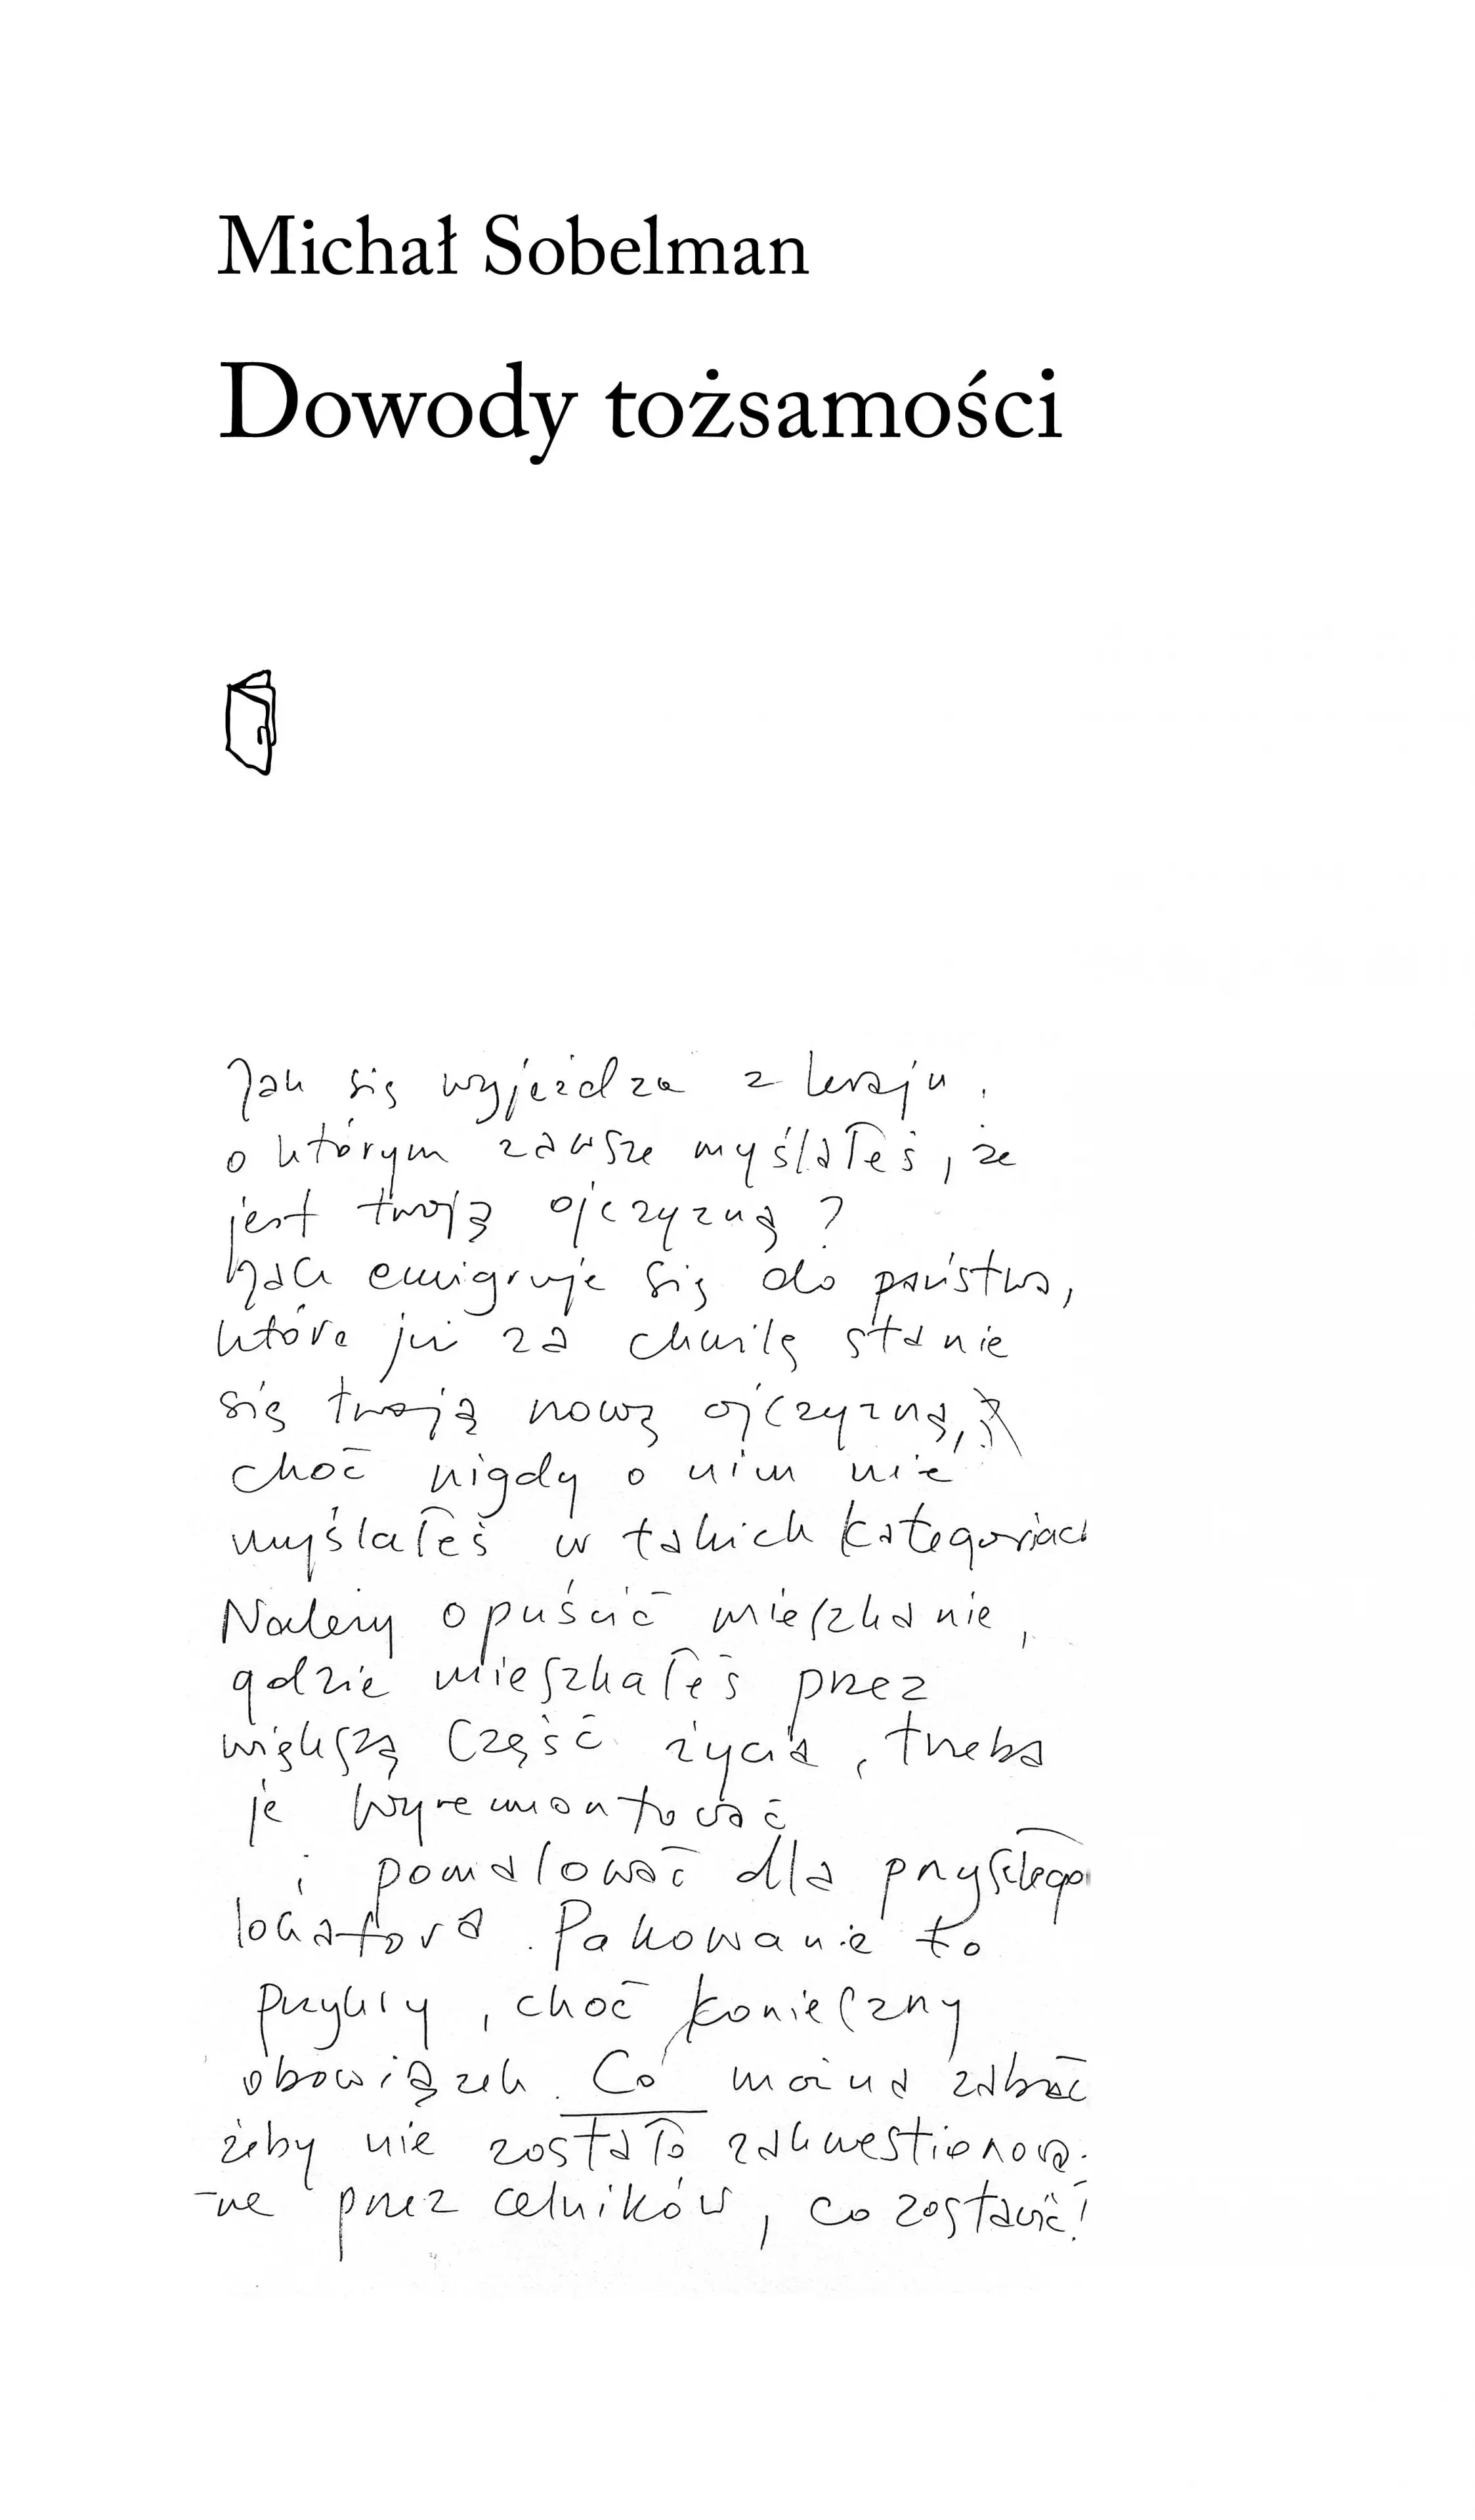 Michał Sobelman
Dowody tożsamości
Jak się wyjeżdża z kraju,
o którym zawsze myślałeś, że
jest twoją ojczyzną?
Jak emigruje się do państwa,
które już za chwilę stanie
się twoją nową ojczyzną,
choć nigdy o nim nie
myślałeś w takich kategoriach
Należy opuścić mieszkanie,
gdzie mieszkałeś przez
większą część życia, trzeba
je wyremontować
i pomalować dla przyszłego
lokatora. Pakowanie to
przykry, choć konieczny
obowiązek. Co można zabrać
żeby nie zostało zakwestionowa-
-ne przez celników, co zostawić?